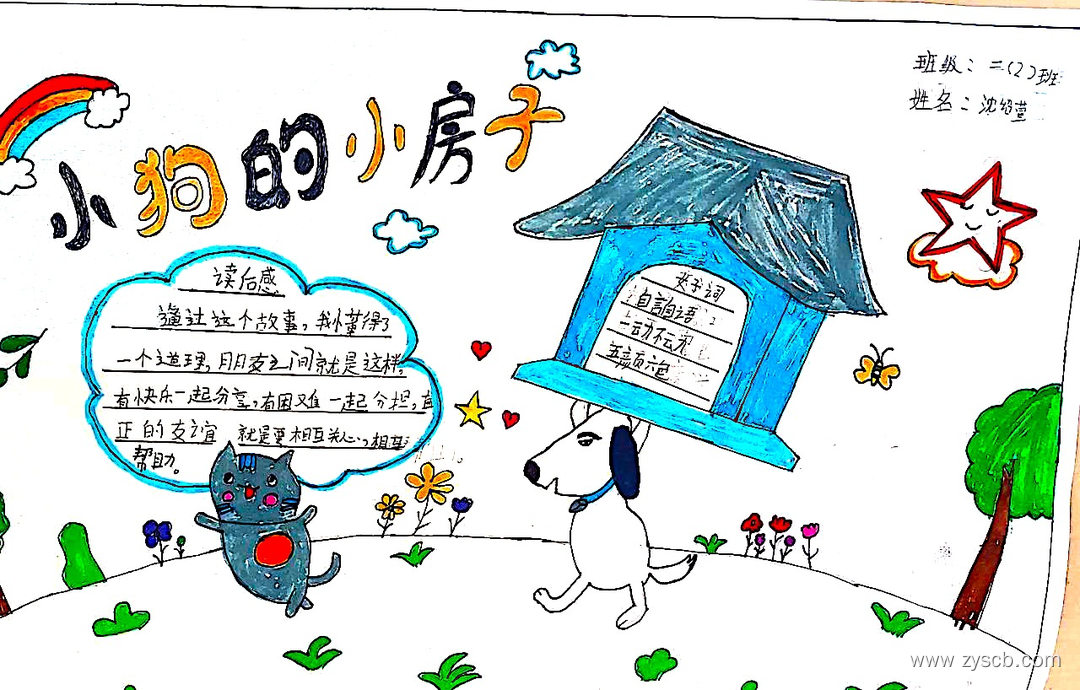 班级：二(2)班
姓名：沈
小狗的小房子
读后感
通过这个故事，我懂得了
一个道理，朋友之间就是这样，
有快乐一起分享，有困难一起分担，真
正的友谊 就是要相互关心，相互
帮助。
好词
自言自语
一动不动
五颜六色
www.zyscb.com